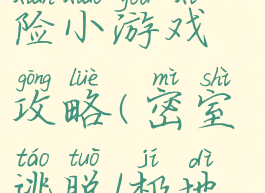 险小游戏
gōng lüè mì shì
攻略(密室
táo tuō jí dì
逃脱(极地